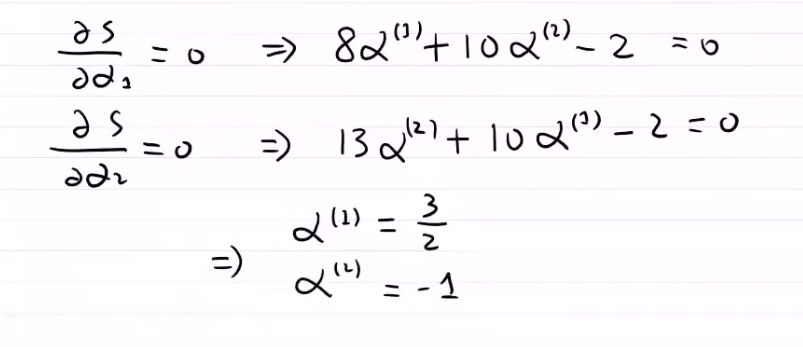 ∂S/∂α₁ = 0 ⇒ 8α⁽¹⁾ + 10α⁽²⁾ - 2 = 0
∂S/∂α₂ = 0 ⇒ 13α⁽²⁾ + 10α⁽¹⁾ - 2 = 0
⇒ α⁽¹⁾ = 3/2
α⁽²⁾ = -1